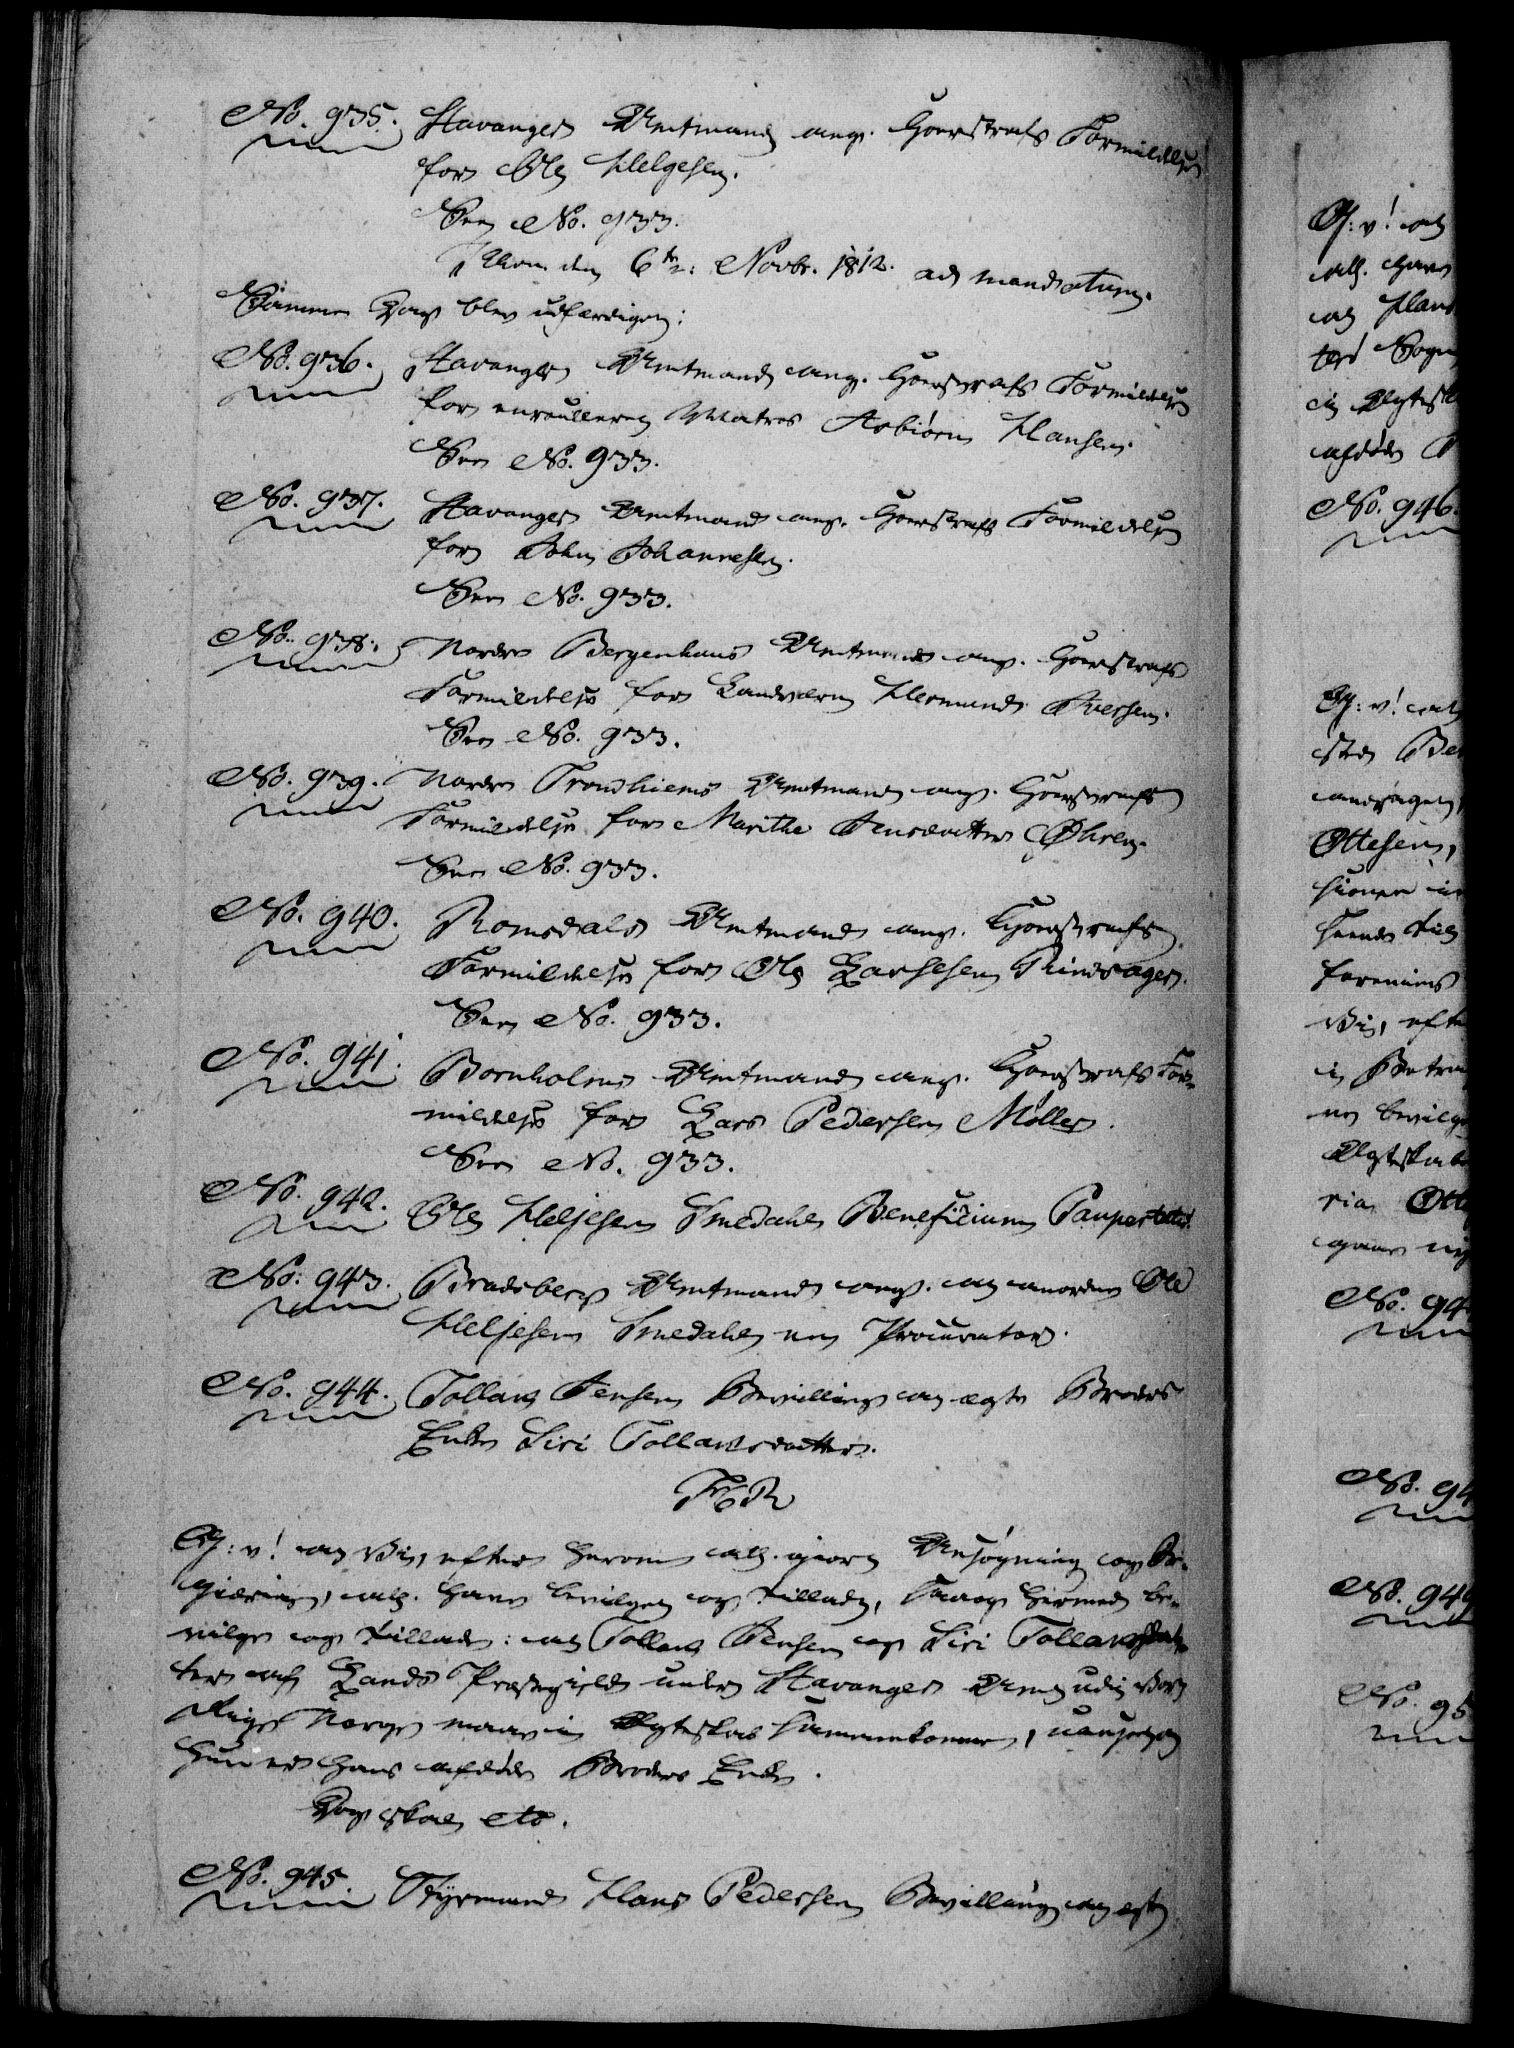 No. 935. Stavangers Amtmand ang. Hoerstrafs Formildelse
for Ole Helgesen.
See No. 933.
Khvn. den 6te Novbr. 1812. ad mandatum.
Samme Dag blev udfærdiget:
No. 936. Stavangers Amtmand ang. Hoerstrafs Formildelse
for enroulleret Matros Asbiørn Hansen.
See No. 933.
No. 937. Stavangers Amtmand ang. Hoerstrafs Formildelse
for John Johannesen.
See No. 933.
No. 938. Nordre Bergenhuus Amtmand ang. Hoerstrafs
Formildelse for Landværn Hermund Iversen.
See No. 933.
No. 939. Nordre Trondhiems Amtmand ang. Hoerstrafs
Formildelse for Marithe Jensdatter Øhren.
See No. 933.
No. 940. Romsdals Amtmand ang. Hoerstrafs
Formildelse for Ole Larsesen Rindsager.
See No. 933.
No. 941. Bornholms Amtmand ang. Hoerstrafs For-
mildelse for Lars Pedersen Møller.
See No. 933.
No. 942. Ole Heljesen Smedahl Beneficium Paupertatis.
No. 943. Bradsbergs Amtmand ang. at anordne Ole
Heljesen Smedahl en Procurator.
No. 944. Tollak Jensen Bevilling at ægte Broders
Enke Siri Tollaksdatter.
F6R
G: v! at Vi, efter herom all. giort Ansøgning og Be-
giering, all. have bevilget og tilladt, saa og hermed be-
vilge og tillade: at Tollak Jensen og Siri Tollaksdat-
ter af Lands Præstegield under Stavanger Amt udi vort
Rige Norge maae i Ægteskab sammenkomme, uanseet at
hun er hans afdøde Broders Enke.
Dog skal etc.
No. 945. Styrmand Hans Pedersen Bevilling at ægte
G: v! at
all. have
at Hans
ters Sogn
i Ægtesk
afdøde
No. 946.
G: v! at
sted Be
andragen,
Ottesen,
Vi, efte
i Betra
Ægteskab
ria Ott
No. 94
No. 94
No. 949
No. 95